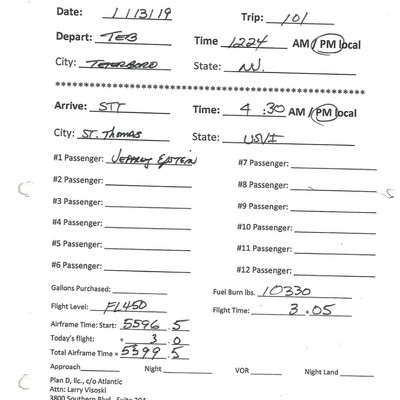 Date: 1/13/19 Trip: 101
Depart: TEB Time 1224 AM/PM local
City: TETERBORO State: NJ.
******************************************************
Arrive: STT Time: 4:30 AM/PM local
City: ST. THOMAS State: USVI
#1 Passenger: JEFFREY EPSTEIN #7 Passenger:
#2 Passenger: #8 Passenger:
#3 Passenger: #9 Passenger:
#4 Passenger: #10 Passenger:
#5 Passenger: #11 Passenger:
#6 Passenger: #12 Passenger:
Gallons Purchased: Fuel Burn lbs. 10330
Flight Level: FL450 Flight Time: 3.05
Airframe Time: Start: 5596.5
Today's flight: + 3.0
Total Airframe Time = 5599.5
Approach Night VOR Night Land
Plan D, llc., c/o Atlantic
Attn: Larry Visoski
3800 Southern Blvd., Suite 204